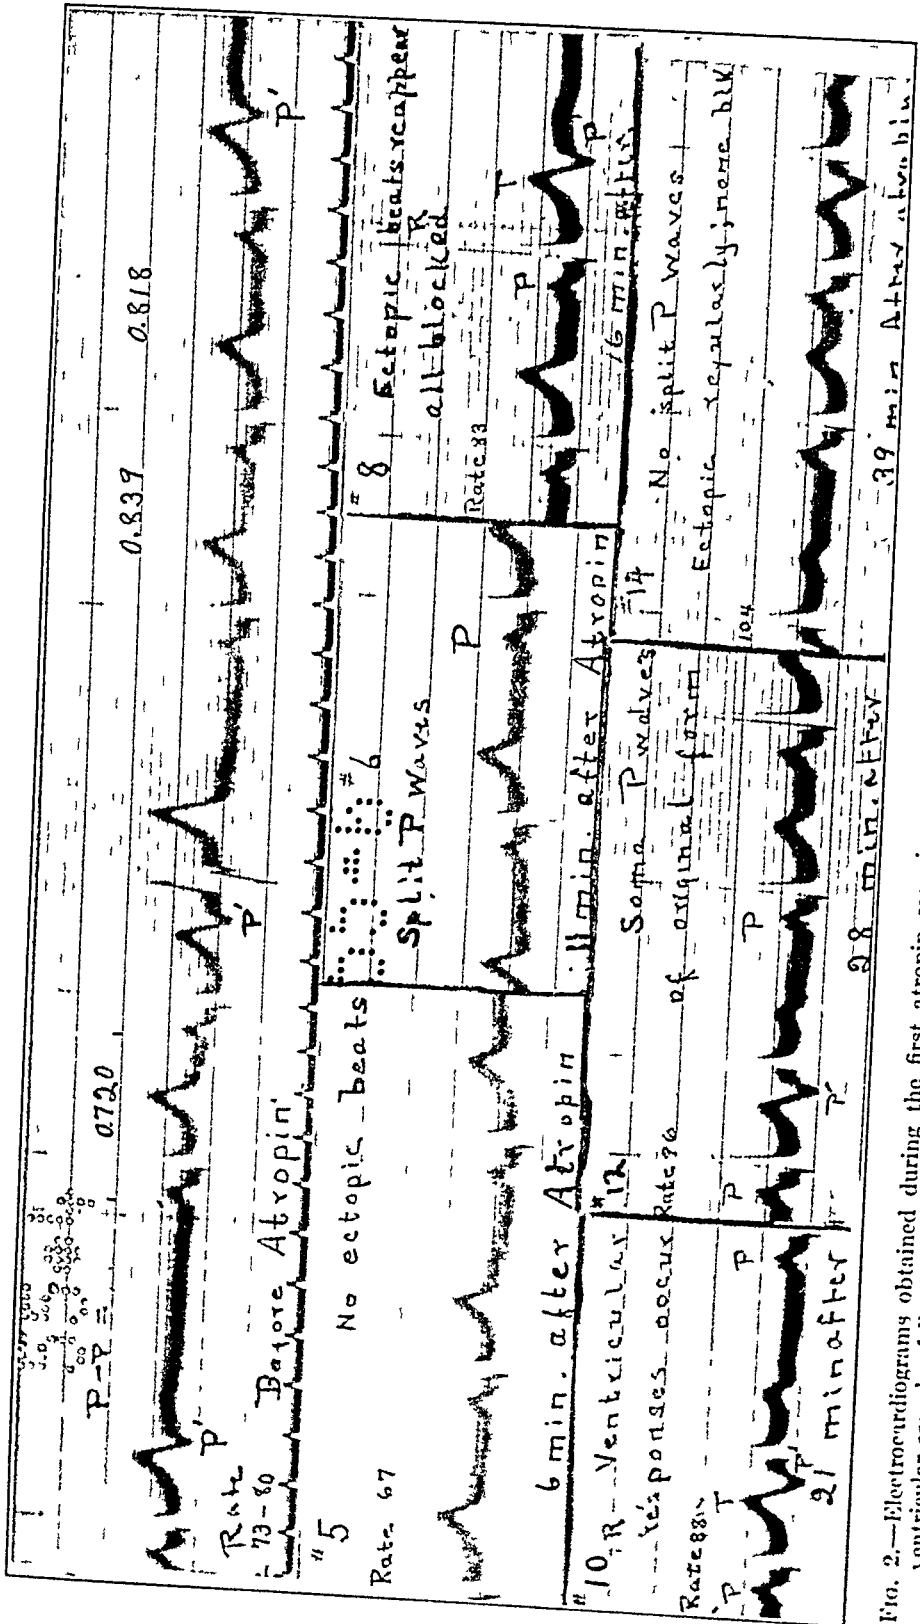 P-P =
0.720
0.839
0.818
P'
P'
P'
Rate
73-80
Before Atropin
#5
No ectopic beats
Rate 67
6 min. after Atropin
#6
Split P Waves
P
11 min. after Atropin
#8
Ectopic beats reappear
R
all blocked
Rate 83
P
T
P
16 min. after
#10
R Ventricular
responses occur
Rate 88
P
T
P'
P
21 min after
#12
Some P waves
of original form
Rate 96
P
P'
P
28 min. after
#14
No split P waves
Ectopic regularly; none blk
104
39 min
FIG. 2.—Electrocardiograms obtained during the first atropin